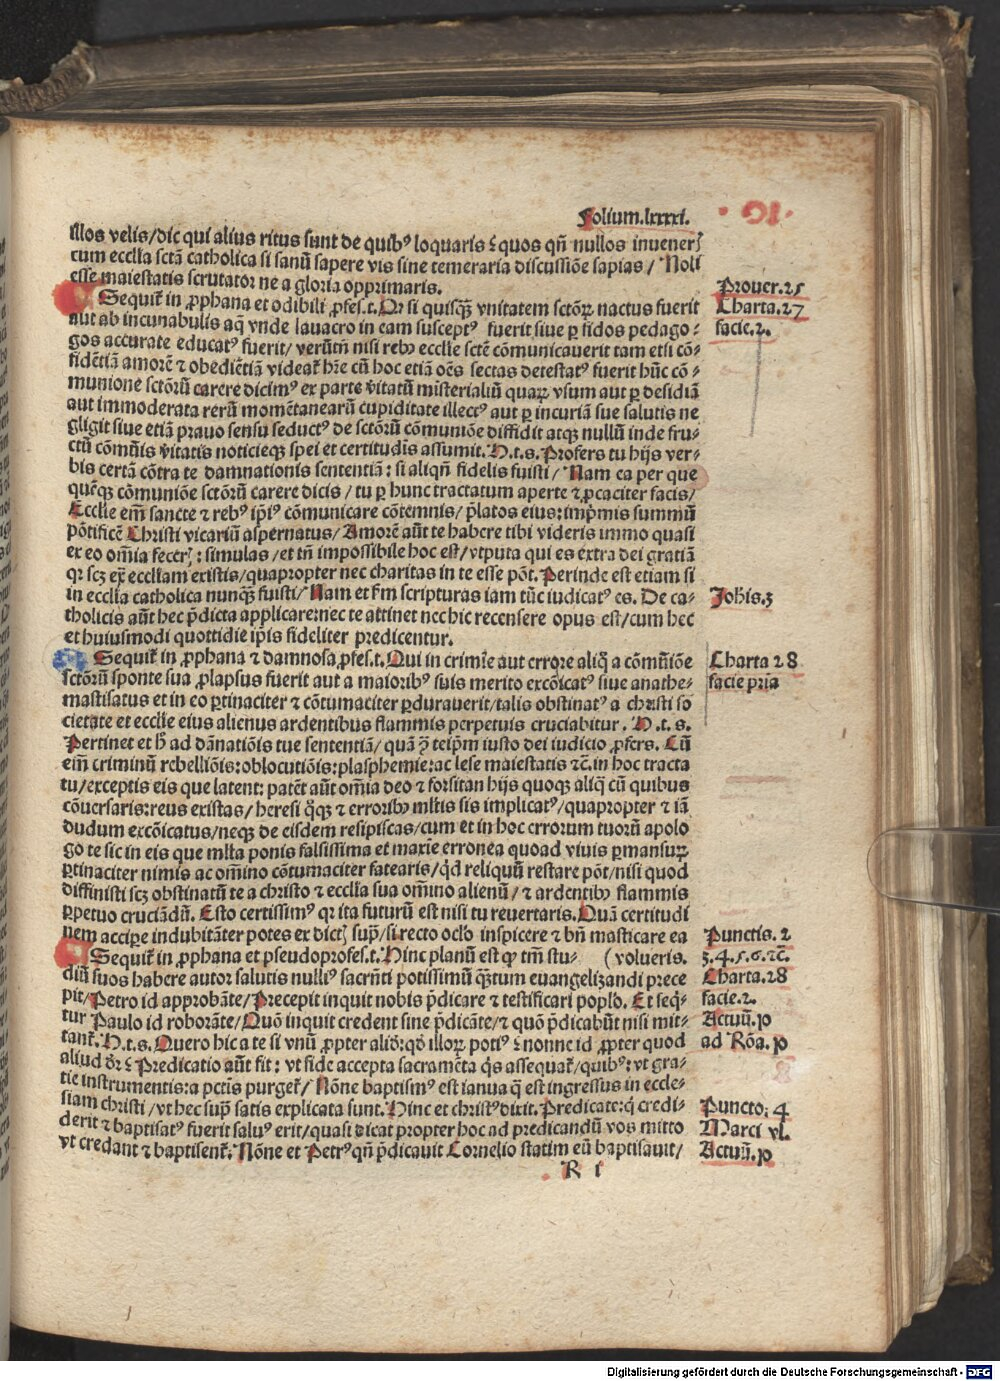 Folium.lxxxi.
illos velis/dic qui alius ritus sunt de quibꝰ loquaris ⁊ quos qn̄ nullos inuenerꝭ
cum eccl̄ia sctā catholica si sanū sapere vis sine temeraria discussiōe sapias/ Noli
esse maiestatis scrutator ne a gloria opprimaris.
Sequit̄ in ꝓphana et odibili ꝓfes.t. Qꝛ si quisq̄ꝫ vnitatem sctōꝝ nactus fuerit
Prouer.25
Charta.27
facie.2.
aut ab incunabulis aq̄ vnde lauacro in eam susceptꝰ fuerit siue ꝑ fidos pedago⸗
gos accurate educatꝰ fuerit/ verūtn̄ nisi rebꝰ eccl̄ie sctē cōmunicauerit tam etsi cō⸗
fidētiā amorē ⁊ obediētiā videat̄ hr̄e cū hoc etiā oēs sectas detestatꝰ fuerit hūc cō⸗
munione sctōrū carere dicimꝰ ex parte v̄itatū misterialiū quaꝝ vsum aut ꝑ desidiā
aut immoderata rerū momētanearū cupiditate illectꝰ aut ꝑ incuriā sue salutis ne
gligit siue etiā prauo sensu seductꝰ de sctōrū cōmuniōe diffidit atqꝫ nullū inde fru⸗
ctū cōmūis v̄itatis noticieqꝫ spei et certitudīs assumit. H.t.s. Profers tu hijs ver⸗
bis certā cōtra te damnationis sententiā: si aliqn̄ fidelis fuisti/ Nam ea per que
quēqꝫ cōmuniōe sctōrū carere dicis/ tu ꝑ hunc tractatum aperte ⁊ ꝓcaciter facis/
Eccl̄ie em̄ sancte ⁊ rebꝰ ip̄iꝰ cōmunicare cōtemnis/ p̄latos eius: imp̄mis summū
pōtificē Christi vicariū aspernatus/ Amorē aūt te habere tibi videris immo quasi
ex eo om̄ia fecerꝭ: simulas/ et tn̄ impossibile hoc est/ vtputa qui es extra dei gratiā
qꝛ scꝫ ex̄ eccl̄iam existis/quapropter nec charitas in te esse pōt. Perinde est etiam si
in eccl̄ia catholica nunq̄ꝫ fuisti/ Nam et ẜm scripturas iam tūc iudicatꝰ es. De ca⸗
Johis.3
tholicis aūt hec p̄dicta applicare: nec te attinet nec hic recensere opus est/cum hec
et huiusmodi quottidie ip̄is fideliter predicentur.
Sequit̄ in ꝓphana ⁊ damnosa ꝓfes.t. Qui in crim̄ie aut errore aliq̄ a cōmūiōe
Charta 28
facie pria
sctōrū sponte sua ꝓlapsus fuerit aut a maioribꝰ suis merito excōicatꝰ siue anathe⸗
mastisatus et in eo ꝑtinaciter ⁊ cōtumaciter ꝑdurauerit/talis obstinatꝰ a christi so
cietate et eccl̄ie eius alienus ardentibus flammis perpetuis cruciabitur. H.t.s.
Pertinet et h̄ ad dānatiōis tue sententiā/ quā ꝙ̄ teip̄m iusto dei iudicio ꝓfers. Cū
em̄ criminū rebelliōis: oblocutiōis: plasphemie: ac lese maiestatis ⁊c̄. in hoc tracta
tu/exceptis eis que latent: patēt aūt om̄ia deo ⁊ forsitan hijs quoqꝫ aliq̄ cū quibus
cōuersaris: reus existas/ heresi q̊qꝫ ⁊ erroribꝰ ml̄tis sis implicatꝰ/quapropter ⁊ iā
dudum excōicatus/neqꝫ de eisdem resipiscas/cum et in hoc errorum tuorū apolo
go te sic in eis que ml̄ta ponis falsissima et maxīe erronea quoad viuis ꝑmansuꝝ
ꝑtinaciter nimis ac om̄ino cōtumaciter fatearis/ q̇d reliquū restare pōt/nisi quod
diffinisti scꝫ obstinatū te a christo ⁊ eccl̄ia sua om̄ino alienū/ ⁊ ardentibꝰ flammis
ꝑpetuo cruciādū. Esto certissimꝰ qꝛ ita futurū est nisi tu reuertaris. Quā certitudi
nem accipe indubitāter potes ex dictꝭ sup̄/si recto ocl̄o inspicere ⁊ bn̄ masticare ea
Punctis.2
3.4.5.6.⁊c̄.
Sequit̄ in ꝓphana et pseudoprofes.t. Hinc planū est ꝙ tm̄ stu⸗ (volueris.
diū suos habere autor salutis nulliꝰ sacrn̄ti potissimū q̄ꝫtum euangelizandi prece
Charta.28
facie.2.
pit/Petro id approbāte/Precepit inquit nobis p̄dicare ⁊ testificari popl̄o. Et seq̄⸗
tur Paulo id roborāte/Quō inquit credent sine p̄dicāte/⁊ quō p̄dicabūt nisi mit⸗
Actuū.10
tant̄. H.t.s. Quero hic a te si vnū ꝓpter aliō: qō illoꝝ potiꝰ ⁊ nonne id ꝓpter quod
ad Rōa.10
aliud ōꝛ ⁊ Predicatio aūt fit: vt fide accepta sacramēta q̇s assequat̄/quibꝰ: vt gra⸗
tie instrumentis: a pctīs purget̄/ Nōne baptismꝰ est ianua q̄ est ingressus in eccle⸗
siam christi/vt hec sup̄ satis explicata sunt. Hinc et christꝰ dixit. Predicate: q̇ credi⸗
Puncto: 4
derit ⁊ baptisatꝰ fuerit saluꝰ erit/quasi dicat propter hoc ad predicandū vos mitto
Marci vl.
vt credant ⁊ baptisent̄. Nōne et Petrꝰ qn̄ p̄dicauit Cornelio statim eū baptisauit/
Actuū.10
R i
Digitalisierung gefördert durch die Deutsche Forschungsgemeinschaft - DFG